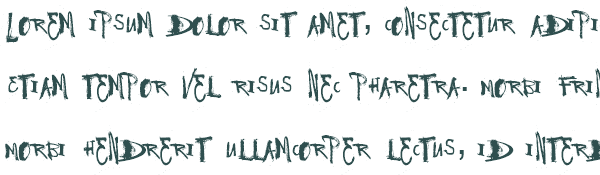 LOREM IPSUM DOLOR SIT AMET, CONSECTETUR ADIPI
ETIAM TEMPOR VEL RISUS NEC PHARETRA. MORBI FRIN
MORBI HENDRERIT ULLAMCORPER LECTUS, ID INTERD